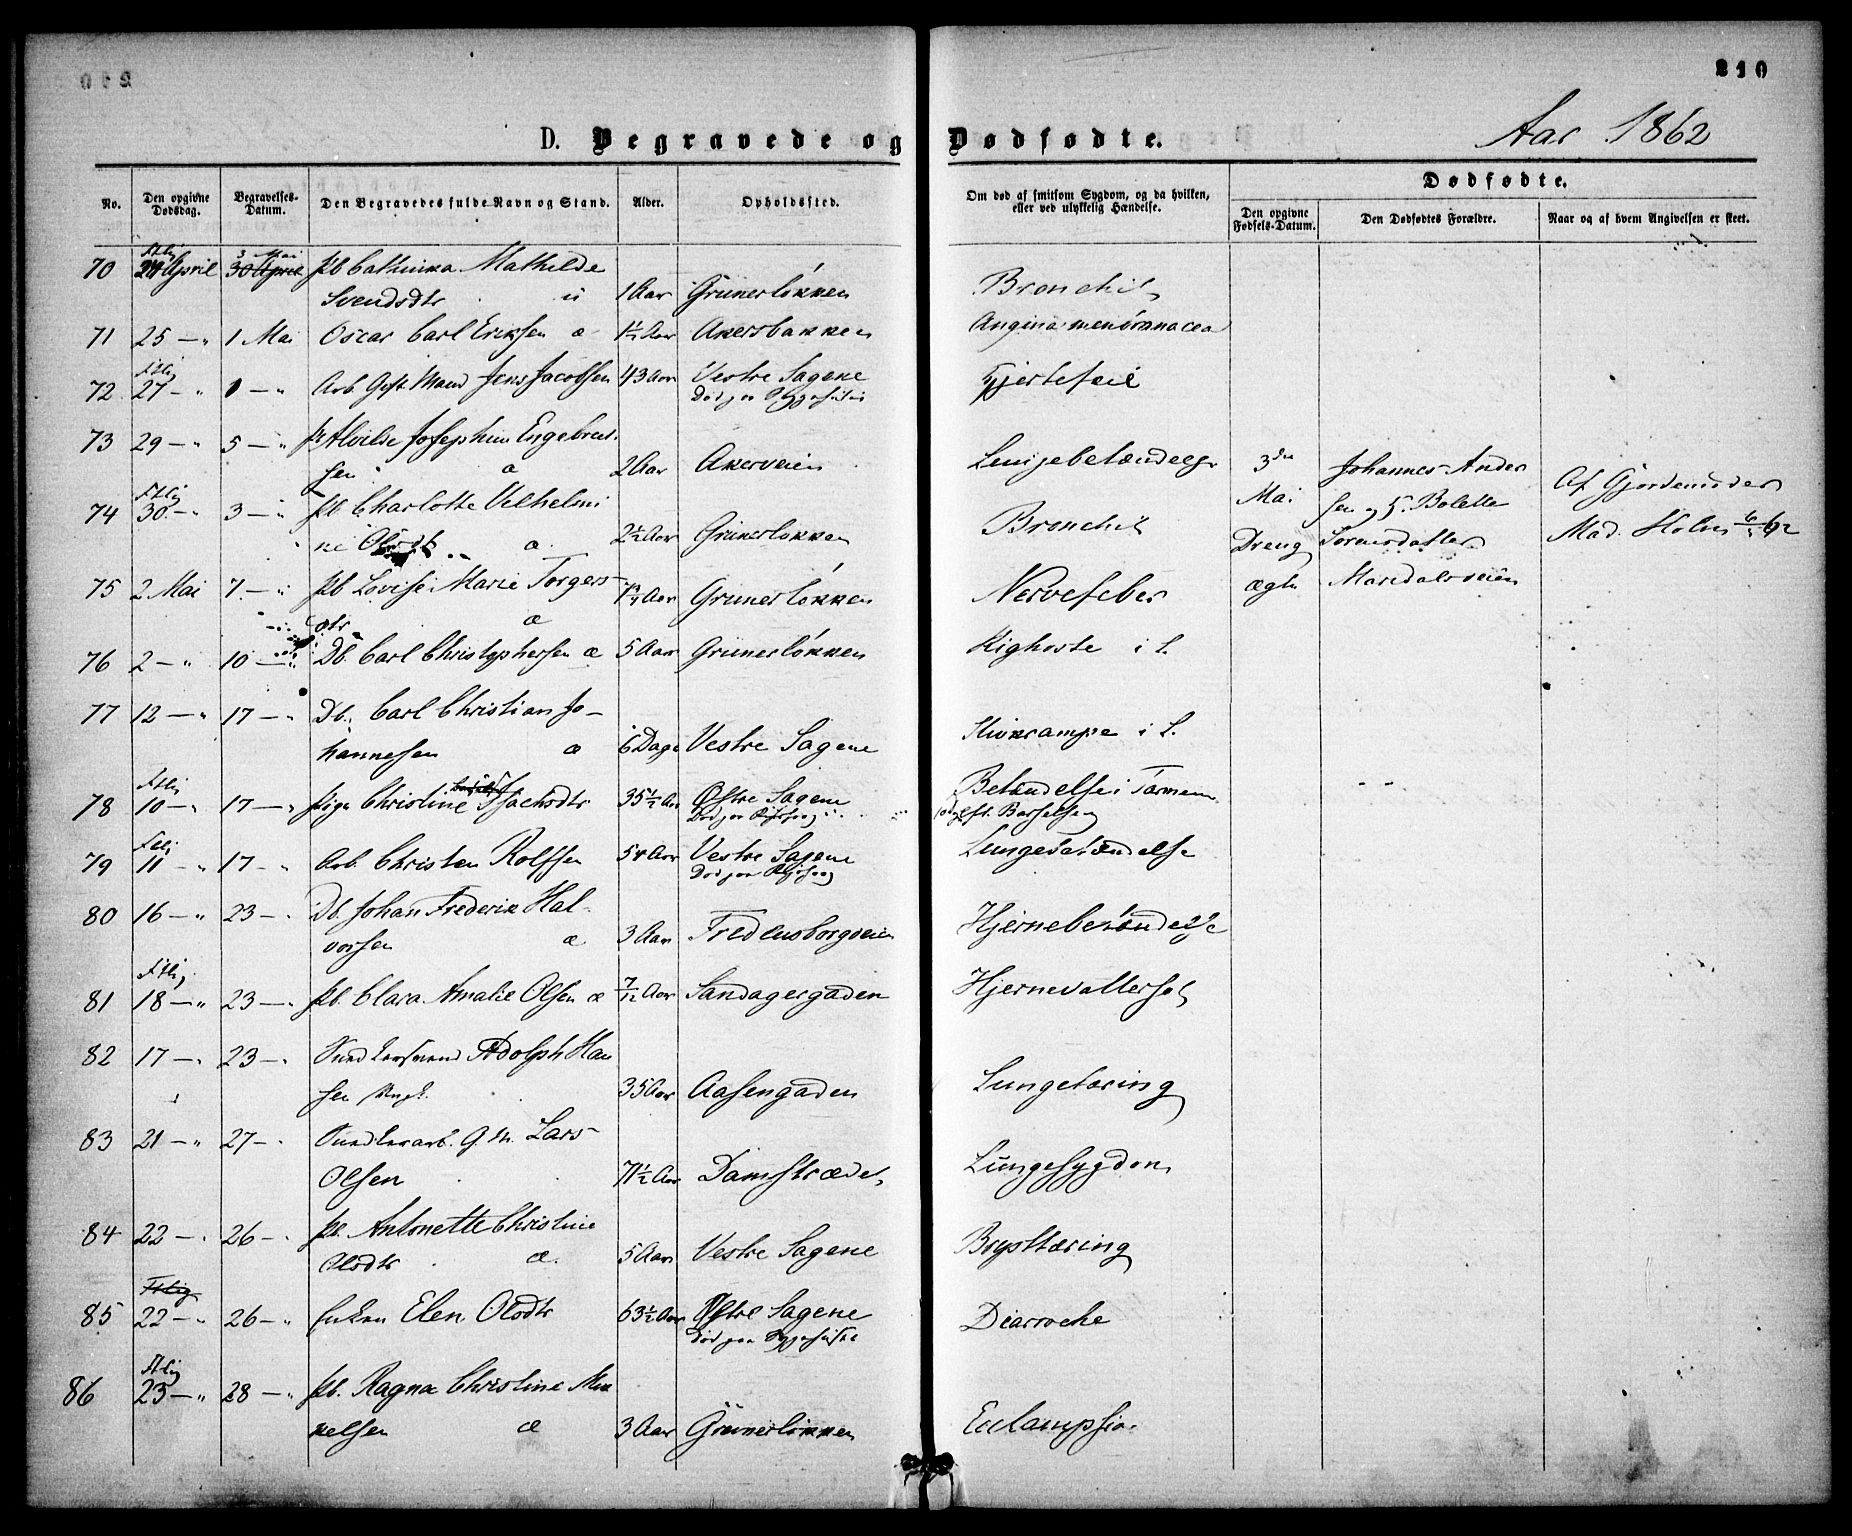 210
Aar 1862
D. Begravede og Dødfødte.
Dødfødte.
No.
Den opgivne Dødsdag.
Begravelses-Datum.
Den Begravedes fulde Navn og Stand.
Alder.
Opholdssted.
Om død af smitsom Sygdom, og da hvilken, eller ved ulykkelig Hændelse.
Den opgivne Fødsels-Datum.
Den Dødfødtes Forældre.
Naar og af hvem Angivelsen er skeet.
3 Mai
70 24 April 30 April Pb Cathinka Mathilde
Svendsdtr u 1 Aar Grünerløkken Bronchit
71 25 — " 1 Mai Oscar Carl Eriksen æ 1½ Aar Akersbakken Angina membranacea
72 27 — " 1 — " Arb. Gift Mand Jens Jacobsen 43 Aar Vestre Sagene Hjertefeil
Død paa Sygehuset
73 29 — " 5 — " Pb Alvilde Josephine Engebret-
sen æ 2 Aar Akerveien Lungebetændelse 3die Johannes Ander
74 30 — " 3 — " Pb. Charlotte Vilhelmi Mai sen og H. Bolette Af Gjordemoder
ne Olsdtr æ 2½ Aar Grünerløkken Bronchit Dreng Sørensdatter Mad. Holm 6/5 62
75 2 Mai 7 — " Pb Lovise Marie Torgers- Aar Grünerløkken Nervefeber ægte Maridalsveien
dtr æ
76 2 — " 10 — " Db. Carl Christophersen æ 5 Aar Grünerløkken Kighoste i L.
77 12 — " 17 — " Db. Carl Christian Jo-
hannesen æ 6 Dage Vestre Sagene Krampe i L.
78 10 — " 17 — " Pige Christine Isachsdtr 35½ Aar Østre Sagene Betændelse i Tarmene
eft. Barselseng
79 11 — " 17 — " Arb. Christen Rolfsen 54 Aar Vestre Sagene Lungebetændelse
80 16 — " 23 — " Db. Johan Frederik Hal-
vorsen æ 3 Aar Fredensborgveien Hjernebetændelse
81 18 — " 23 — " Pb. Clara Amalie Olsen æ 7/12 Aar Sandagergaden Hjernevattersot
82 17 — " 23 — " Adolph Han
sen Ungk. 35 Aar Aasengaden Lungetæring
83 21 — " 27 — " G. M. Lars
Olsen 71½ Aar Damstrædet Lungesygdom
84 22 — " 26 — " Pb. Antonette Christine
Olsdtr æ. 5 Aar Vestre Sagene Brysttæring
85 22 — " 26 — " Enken Elen Olsdtr 63½ Aar Østre Sagene Diarroehe
Død paa Sygehuset
86 23 — " 28 — " Pb. Ragna Christine Mik
kelsen æ 3 Aar Grünerløkken Eclampsia